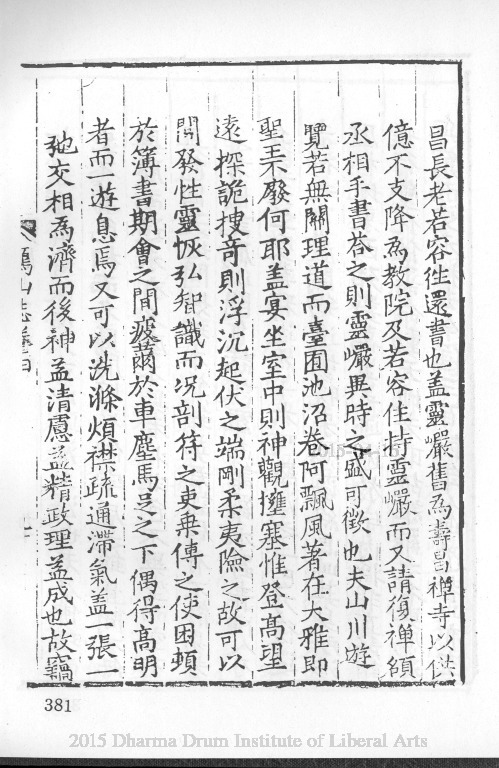 昌長老若容往還書也盖靈巗舊為壽昌禪寺以供
億不支降為教院及若容住持靈巗而又請復禪額
丞相手書荅之則靈巗異時之盛可徴也夫山川遊
覽若無關理道而臺囿池沼卷阿飄風著在大雅即
聖王不廢何耶盖宴坐室中則神觀擁塞惟登髙望
遠探詭搜奇則浮沉起伏之端剛柔夷險之故可以
開發性靈恢弘智識而况剖符之吏乗傳之使困頓
於簿書期會之間瘁薾於車塵馬足之下偶得髙明
者而一遊息焉又可以洗滌煩襟疏通滯氣盖一張一
弛交相為濟而後神益清慮益精政理益成也故竊
山志
381
2015 Dharma Drum Institute of Liberal Arts